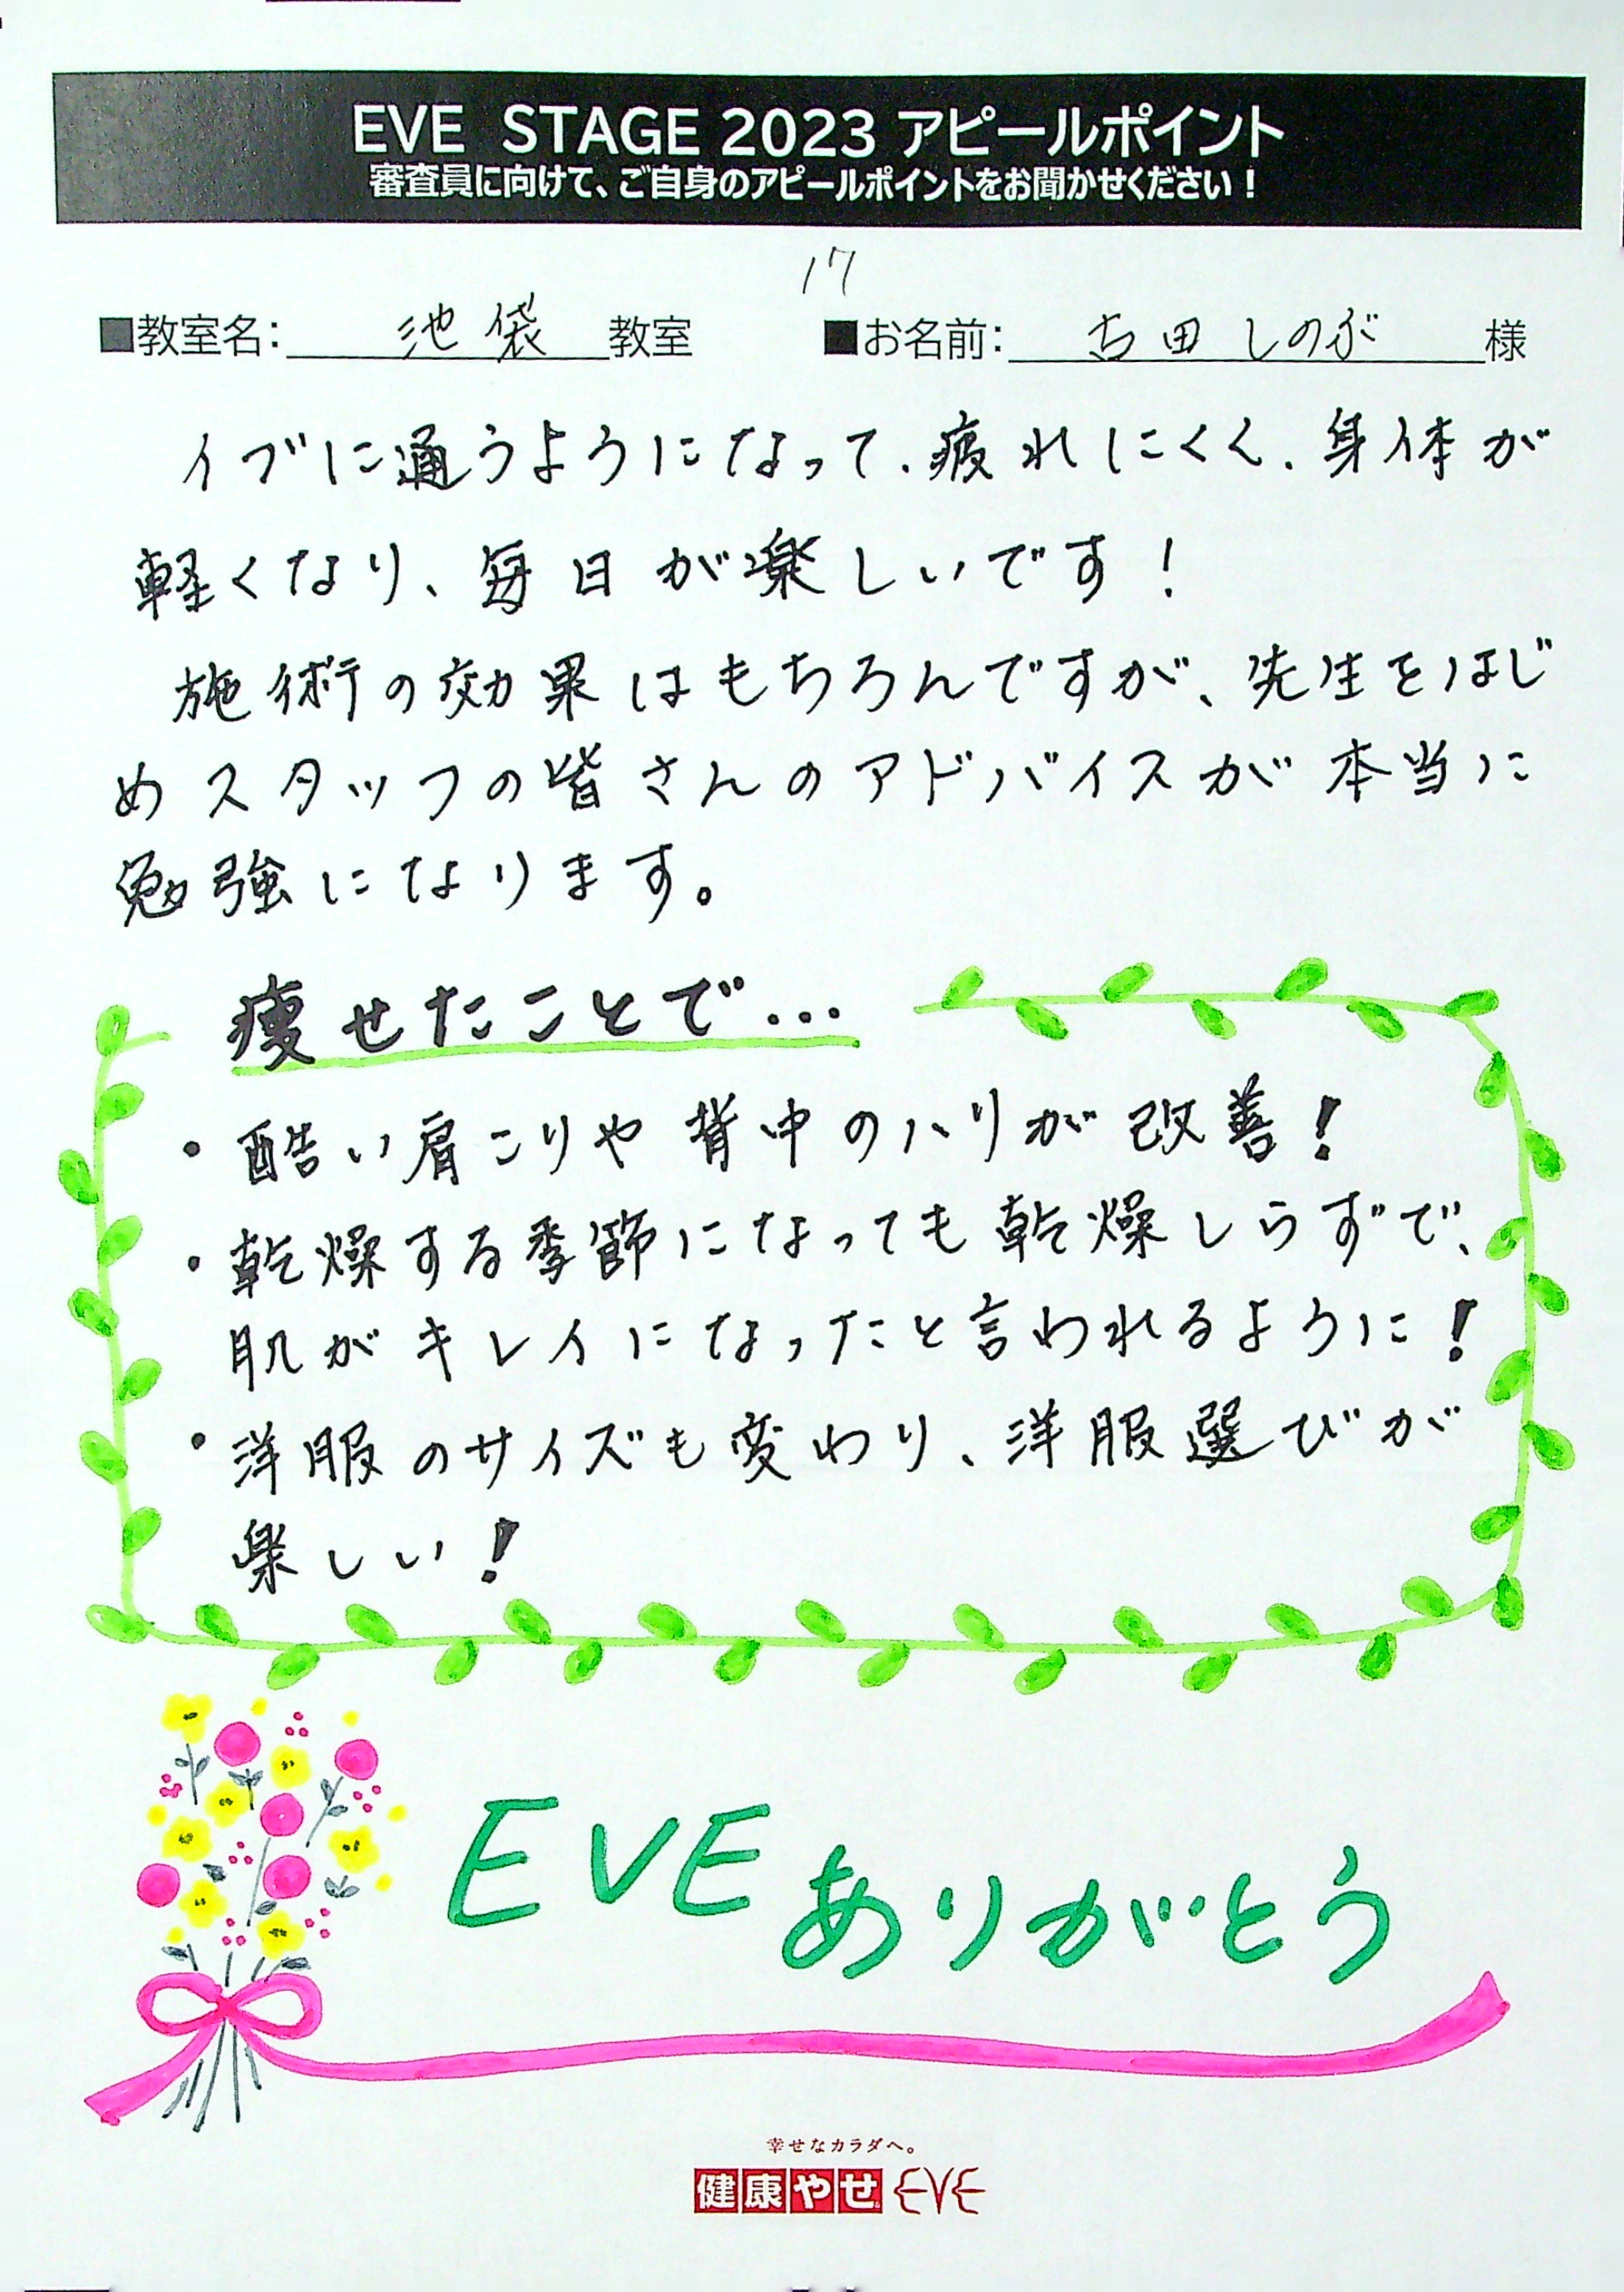 EVE STAGE 2023 アピールポイント
審査員に向けて、ご自身のアピールポイントをお聞かせください！
17
■教室名：池袋教室 ■お名前：古田しのぶ様
イブに通うようになって、疲れにくく、身体が
軽くなり、毎日が楽しいです！
施術の効果はもちろんですが、先生をはじ
めスタッフの皆さんのアドバイスが本当に
勉強になります。
痩せたことで…
・酷い肩こりや背中のハリが改善！
・乾燥する季節になっても乾燥しらずで、
肌がキレイになったと言われるように！
・洋服のサイズも変わり、洋服選びが
楽しい！
EVEありがとう
幸せなカラダへ。
健康やせ EVE